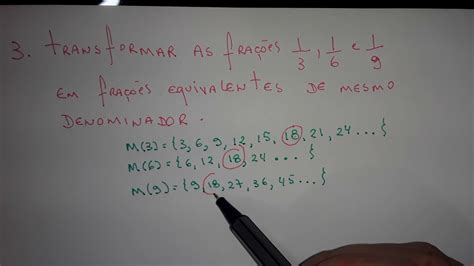 3. TRANSFORMAR AS FRAÇÕES 1/3, 1/6 E 1/9
EM FRAÇÕES EQUIVALENTES DE MESMO
DENOMINADOR.
M(3) = {3, 6, 9, 12, 15, 18, 21, 24 ... }
M(6) = {6, 12, 18, 24 ... }
M(9) = {9 18, 27, 36, 45 ... }